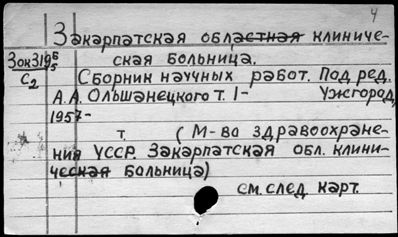 4
Закарпатская областная клиниче-
Зок319 6/5 ская больница.
С2 Сборник научных работ. Под ред.
А.А. Ольшанецкого Т. 1- Ужгород,
1957-
т. (М-ва здравоохране-
ния УССР. Закарпатская обл. клини-
ческая больница)
см. след. карт.